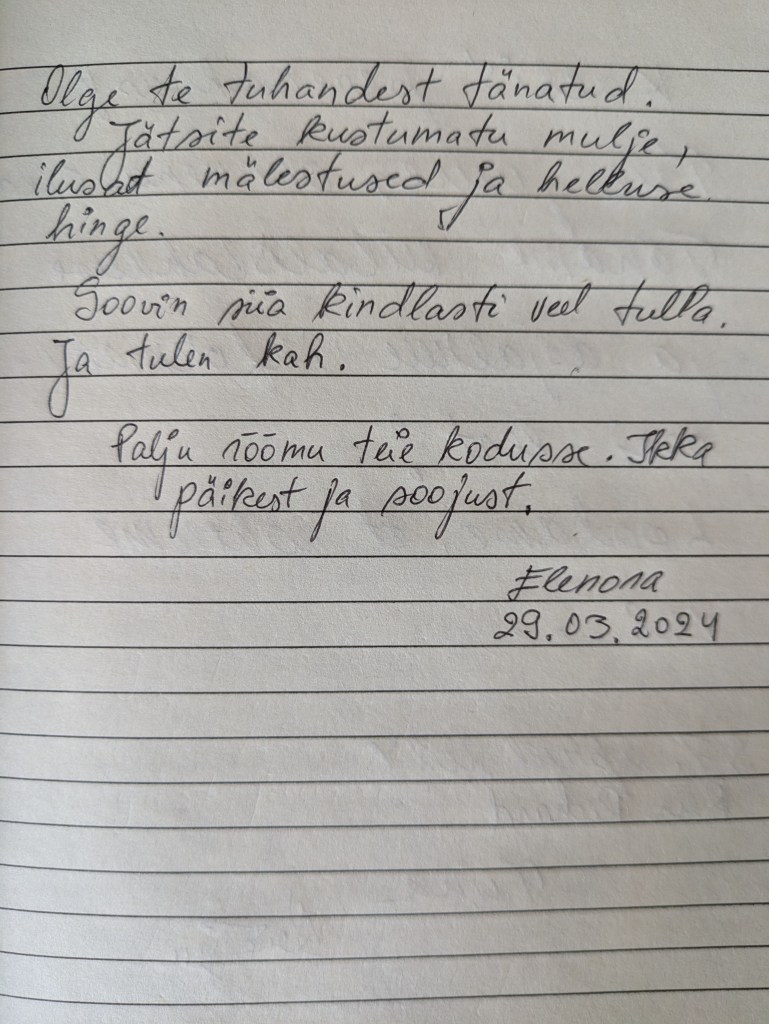 Olge te tuhandest tänatud.
Jätsite kustumatu mulje,
ilusad mälestused ja helluse
hinge.
Soovin siia kindlasti veel tulla.
Ja tulen kah.
Palju rõõmu teie kodusse. Ikka
päikest ja soojust.
Elenora
29.03.2024